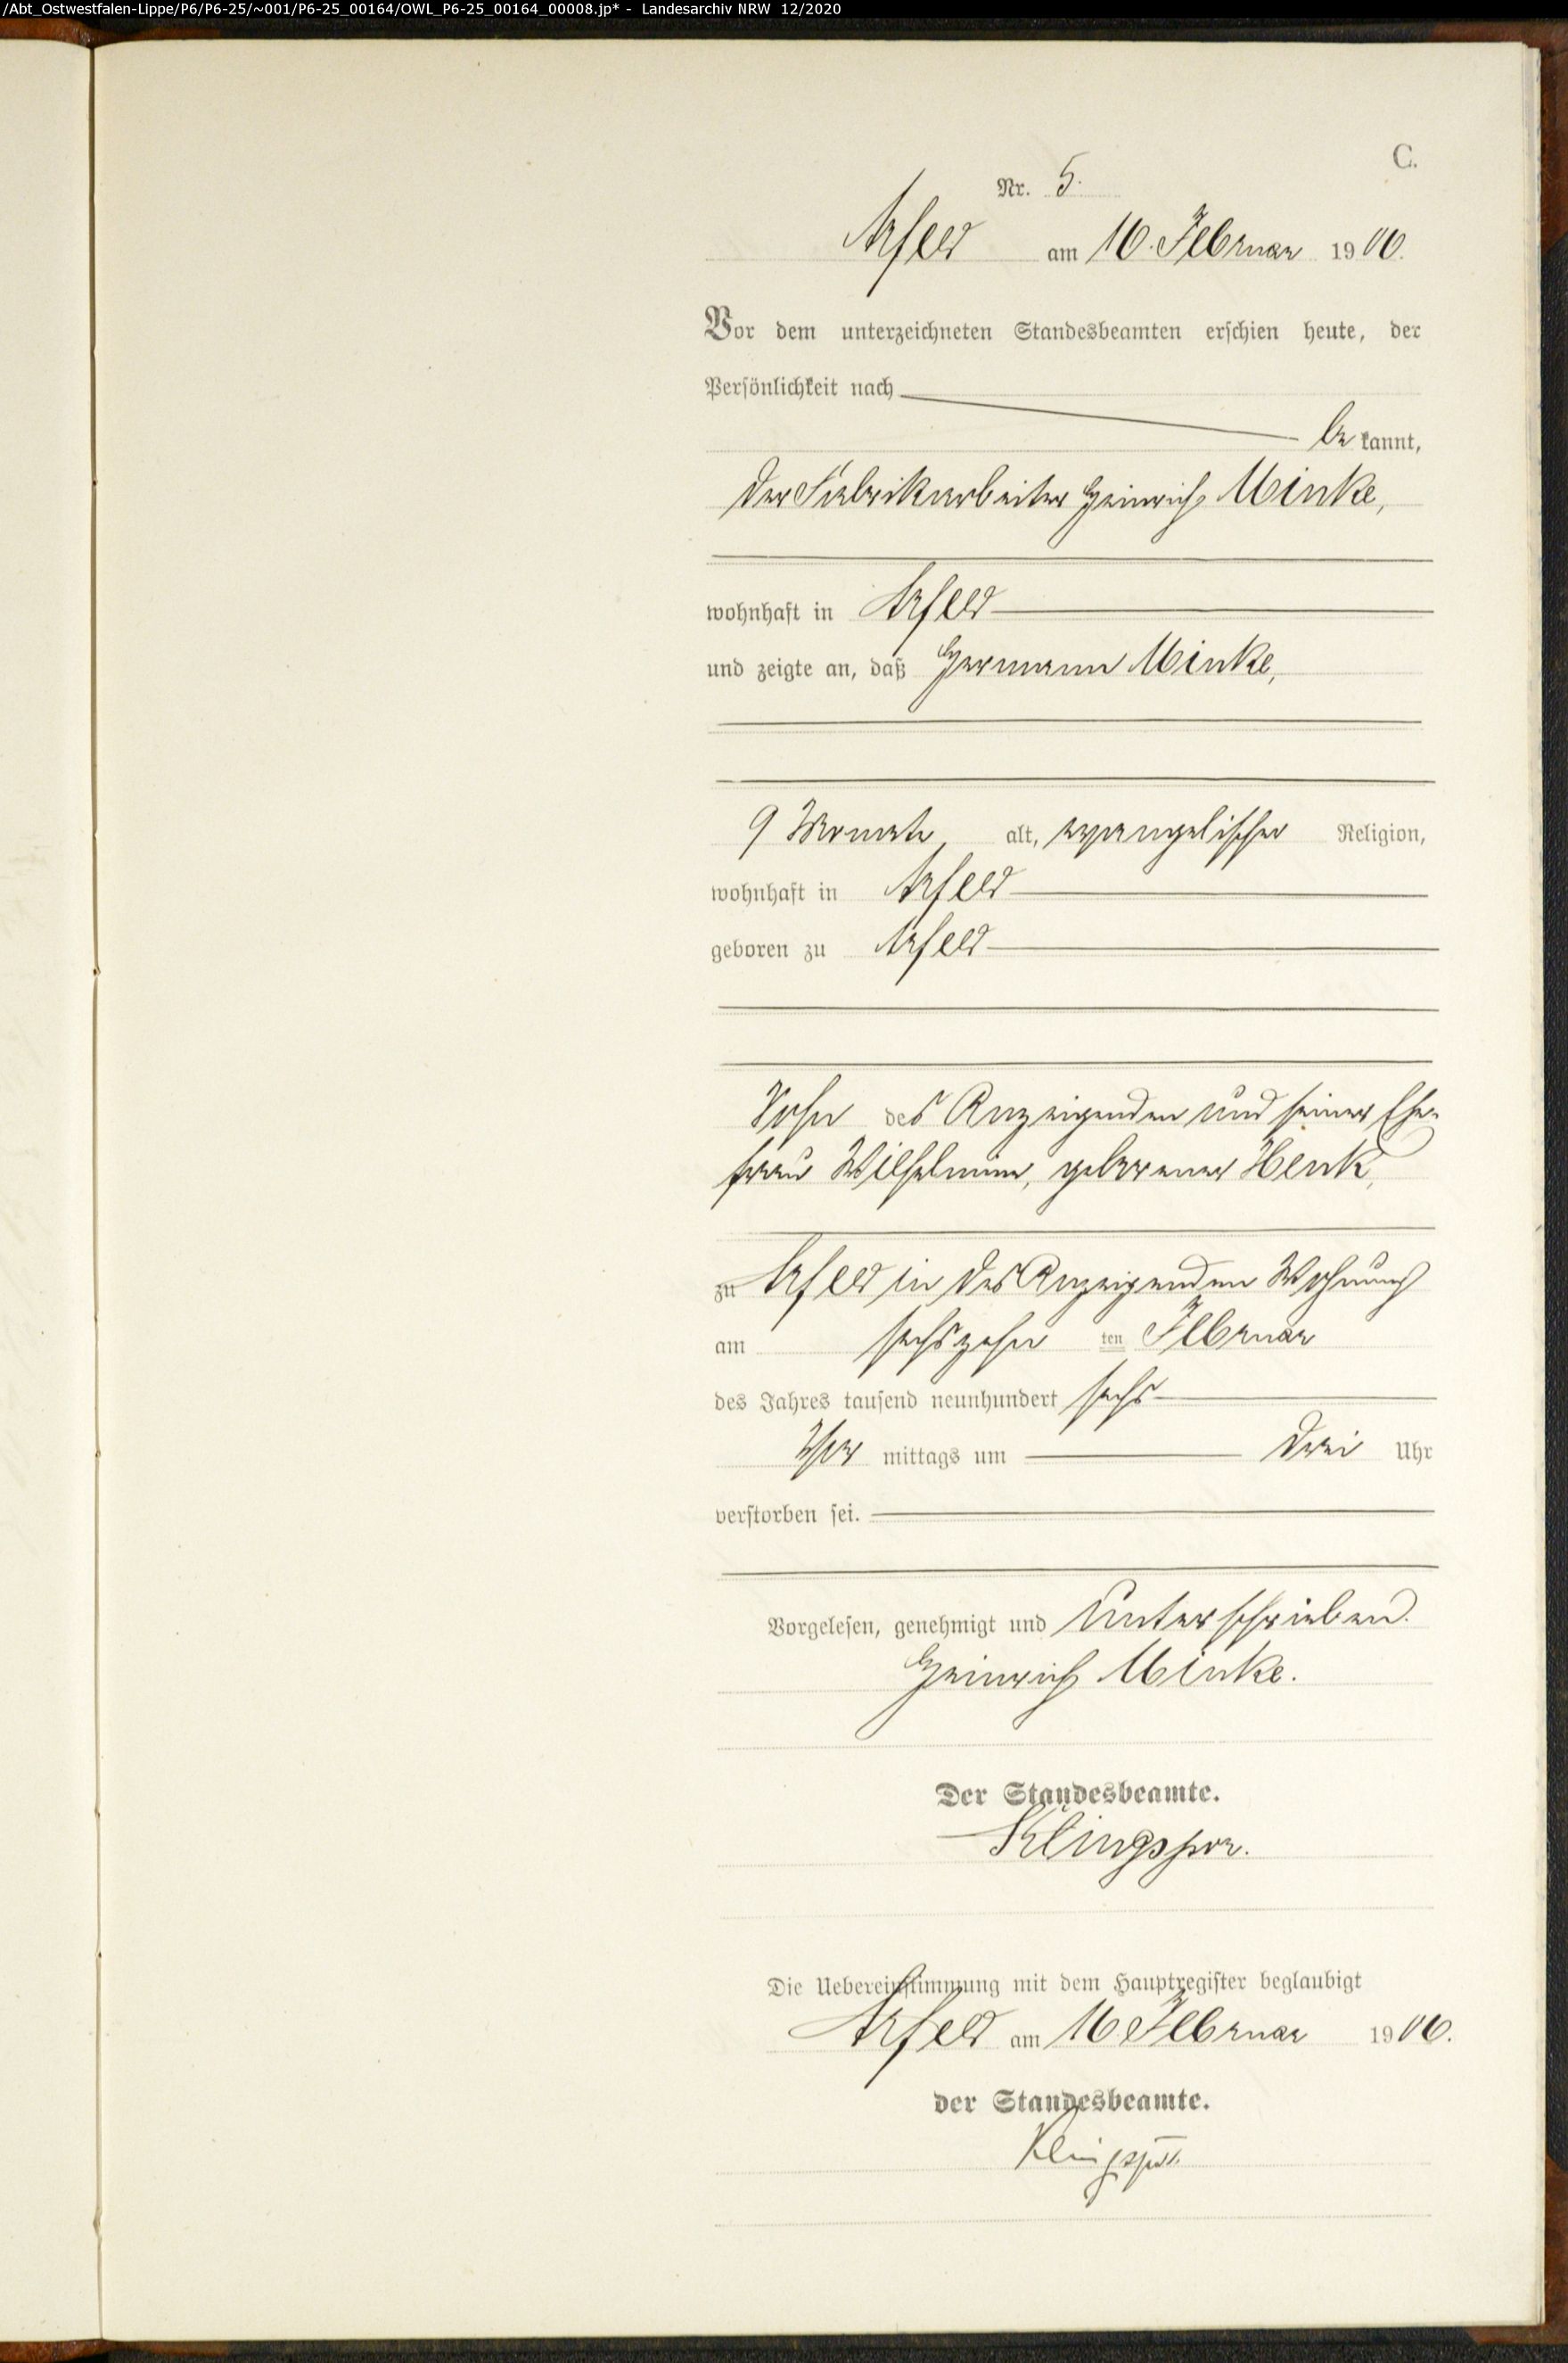 /Abt_Ostwestfalen-Lippe/P6/P6-25/~001/P6-25_00164/OWL_P6-25_00164_00008.jp* - Landesarchiv NRW 12/2020
C.
Nr. 5.
Arfeld am 16. Februar 1906.
Vor dem unterzeichneten Standesbeamten erschien heute, der
Persönlichkeit nach
bekannt,
der Fabrikarbeiter Heinrich Minke,
wohnhaft in Arfeld
und zeigte an, daß Hermann Minke,
9 Monate, alt, evangelischer Religion,
wohnhaft in Arfeld
geboren zu Arfeld
Sohn des Anzeigenden und seiner Ehe-
frau Wilhelmine, geborener Henk,
zu Arfeld in des Anzeigenden Wohnung
am sechszehnten Februar
des Jahres tausend neunhundert sechs
Vormittags um drei Uhr
verstorben sei.
Vorgelesen, genehmigt und unterschrieben.
Heinrich Minke.
Der Standesbeamte.
Klingspor.
Die Uebereinstimmung mit dem Hauptregister beglaubigt
Arfeld am 16 Februar 1906.
der Standesbeamte.
Klingspor.